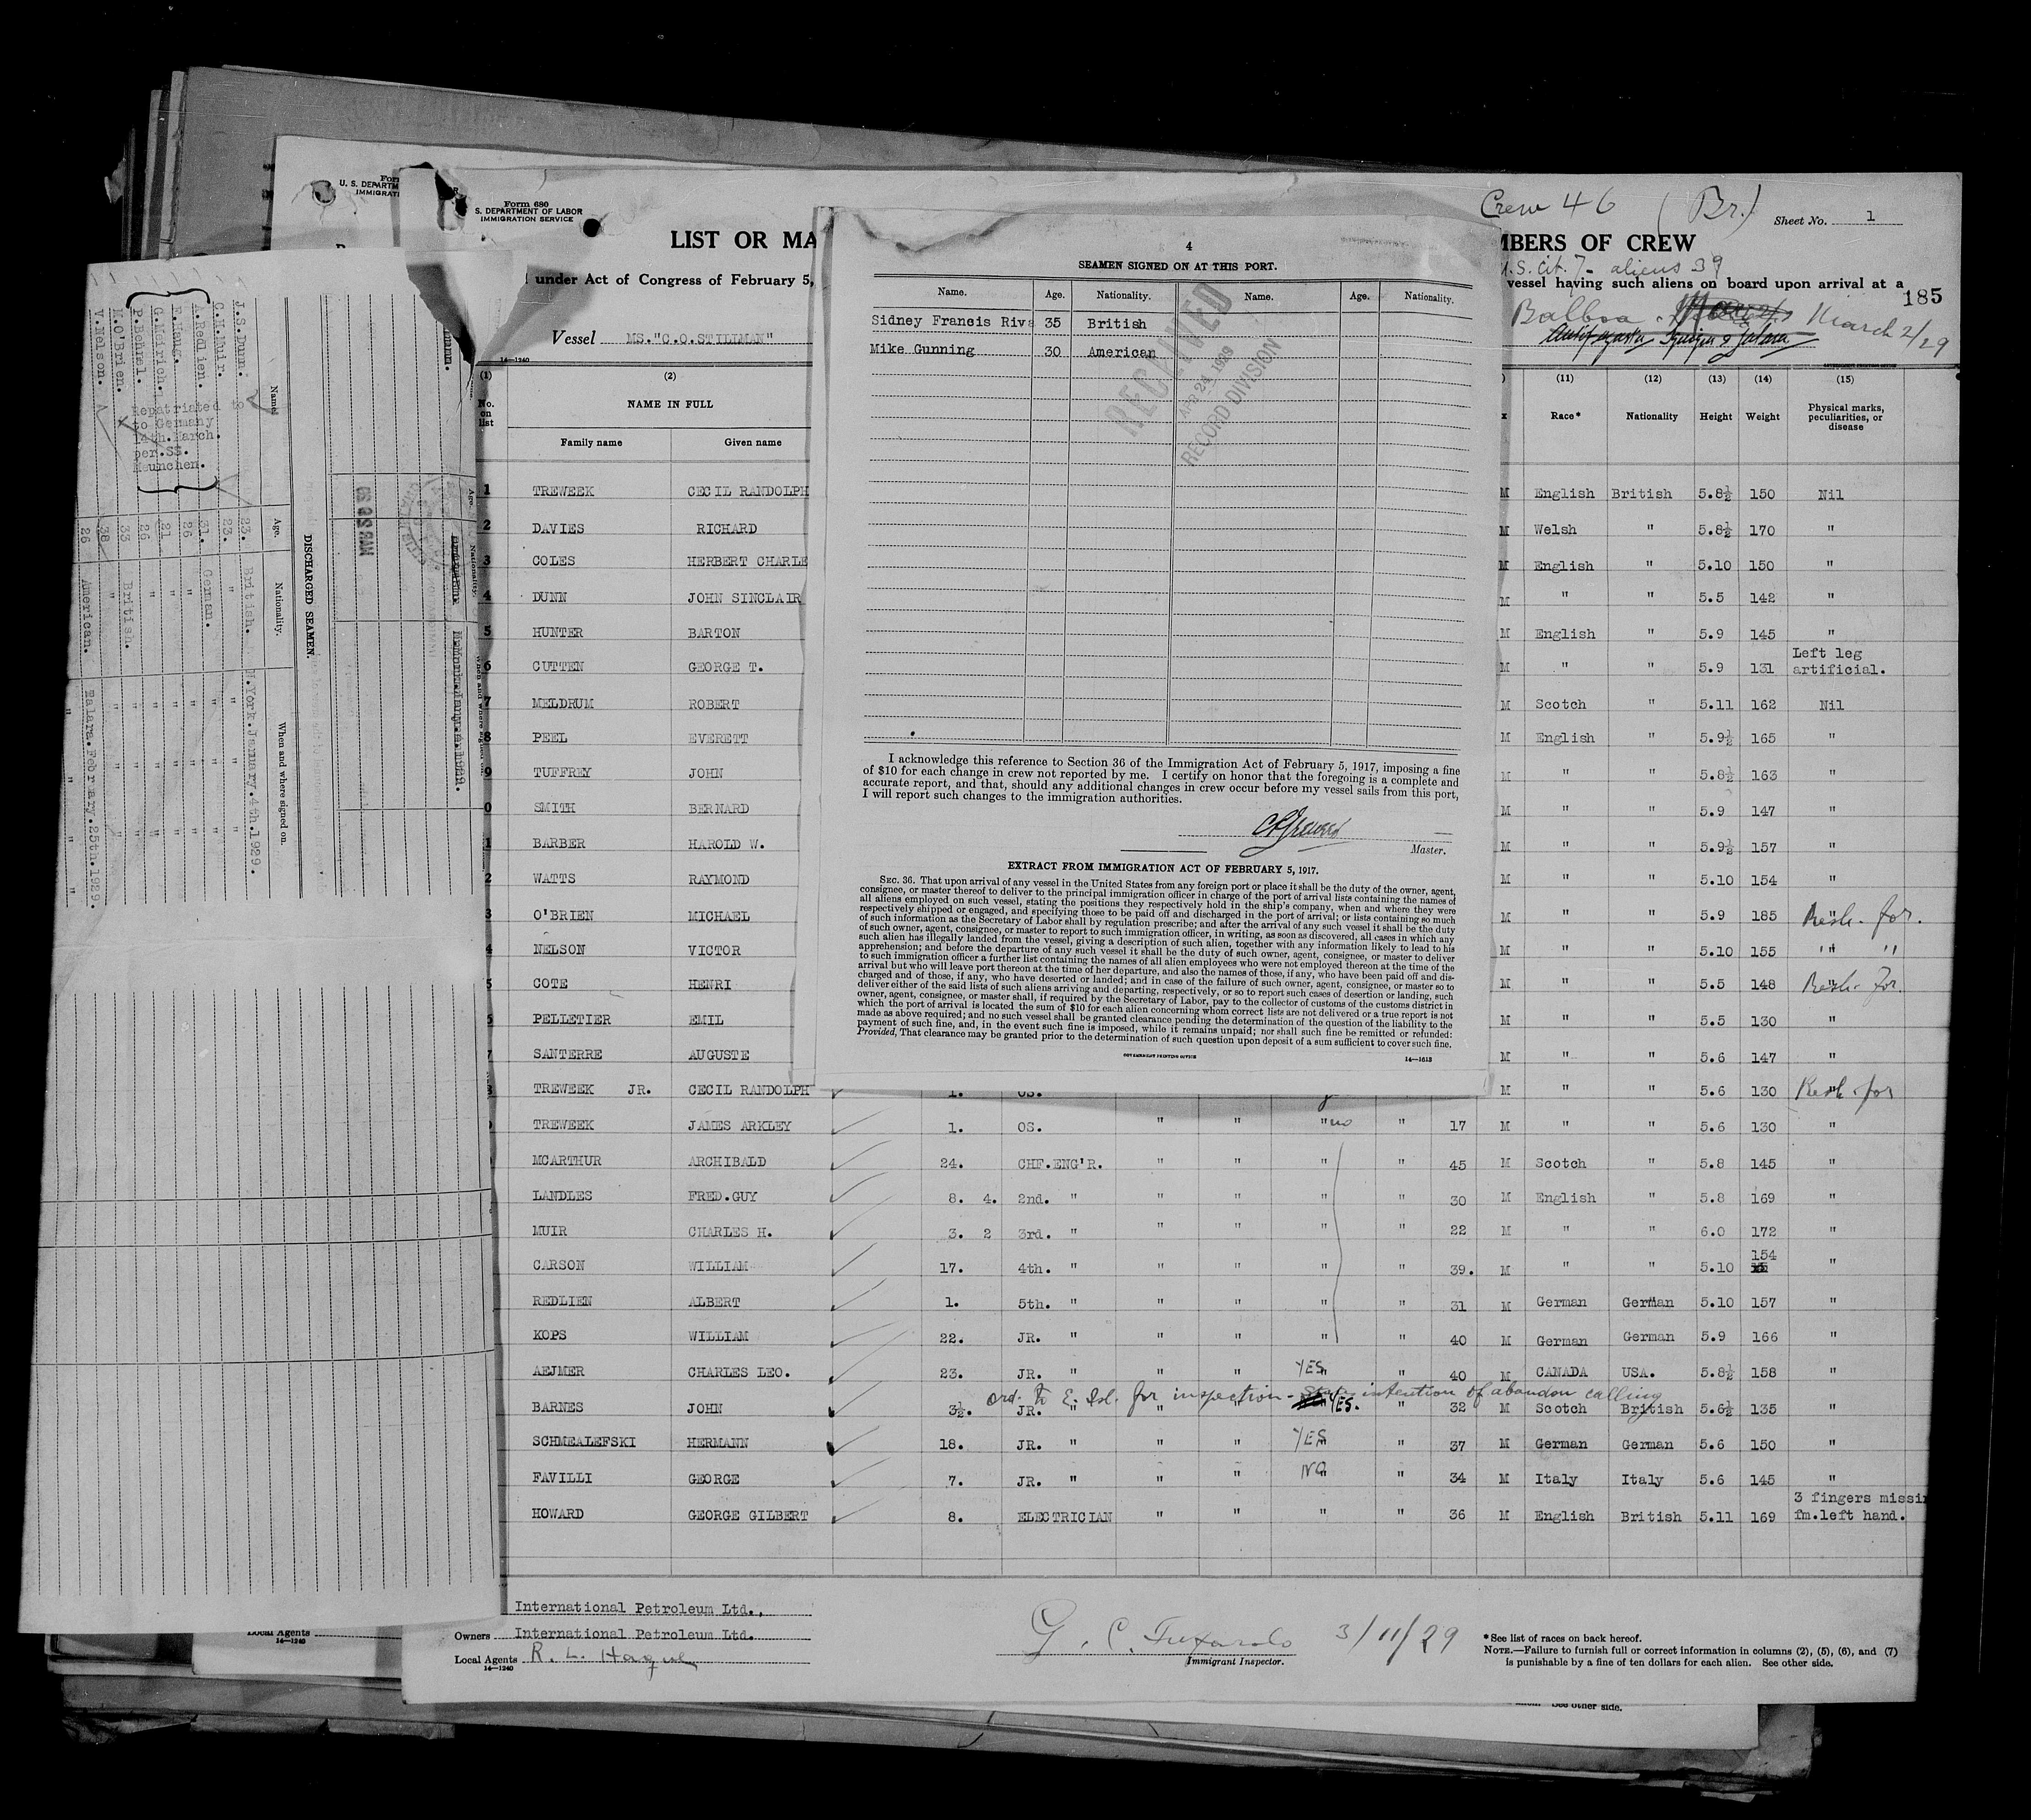 Form 680
S. DEPARTMENT OF LABOR
IMMIGRATION SERVICE
Crew 46 (Br.)
Sheet No. 1
LIST OR MA
MBERS OF CREW
U.S. Cit. 7 - aliens 39
under Act of Congress of February 5,
vessel having such aliens on board upon arrival at a
185
Vessel MS."C.O.STILLMAN"
Balboa March 2/29
14-1240
(1) (2) (11) (12) (13) (14) (15)
No. on list NAME IN FULL Race* Nationality Height Weight Physical marks, peculiarities, or disease
Family name Given name
1 TREWEEK CECIL RANDOLPH M English British 5.8½ 150 Nil
2 DAVIES RICHARD M Welsh " 5.8½ 170 "
3 COLES HERBERT CHARLE M English " 5.10 150 "
4 DUNN JOHN SINCLAIR M " " 5.5 142 "
5 HUNTER BARTON M English " 5.9 145 "
6 CUTTEN GEORGE T. M " " 5.9 131 Left leg artificial.
7 MELDRUM ROBERT M Scotch " 5.11 162 Nil
8 PEEL EVERETT M English " 5.9½ 165 "
9 TUFFREY JOHN M " " 5.8½ 163 "
0 SMITH BERNARD M " " 5.9 147 "
1 BARBER HAROLD W. M " " 5.9½ 157 "
2 WATTS RAYMOND M " " 5.10 154 "
3 O'BRIEN MICHAEL M " " 5.9 185 " for.
4 NELSON VICTOR M " " 5.10 155 " "
5 COTE HENRI M " " 5.5 148 " for.
6 PELLETIER EMIL M " " 5.5 130 "
7 SANTERRE AUGUSTE M " " 5.6 147 "
TREWEEK JR. CECIL RANDOLPH 1. OS. M " " 5.6 130 " for
TREWEEK JAMES ARKLEY 1. OS. " " " no " 17 M " " 5.6 130 "
MCARTHUR ARCHIBALD 24. CHF.ENG'R. " " " " 45 M Scotch " 5.8 145 "
LANDLES FRED.GUY 8. 4. 2nd. " " " " " 30 M English " 5.8 169 "
MUIR CHARLES H. 3. 2 3rd. " " " " " 22 M " " 6.0 172 "
CARSON WILLIAM 17. 4th. " " " " " 39. M " " 5.10 154 "
REDLIEN ALBERT 1. 5th. " " " " " 31 M German German 5.10 157 "
KOPS WILLIAM 22. JR. " " " " " 40 M German German 5.9 166 "
AEJMER CHARLES LEO. 23. JR. " " " YES " 40 M CANADA USA. 5.8½ 158 "
ord. to E. Isl. for inspection - intention of abandon calling
BARNES JOHN 3½. JR. " " " YES. " 32 M Scotch British 5.6½ 135 "
SCHMEALEFSKI HERMANN 18. JR. " " " YES " 37 M German German 5.6 150 "
FAVILLI GEORGE 7. JR. " " " NO " 34 M Italy Italy 5.6 145 "
HOWARD GEORGE GILBERT 8. ELECTRICIAN " " " " 36 M English British 5.11 169 3 fingers missin fm.left hand.
International Petroleum Ltd.,
Owners International Petroleum Ltd.
Local Agents R. L. Hague
14-1240
3/11/29
Immigrant Inspector.
*See list of races on back hereof.
NOTE.—Failure to furnish full or correct information in columns (2), (5), (6), and (7)
is punishable by a fine of ten dollars for each alien. See other side.
See other side.
4
SEAMEN SIGNED ON AT THIS PORT.
Name. Age. Nationality. Name. Age. Nationality.
Sidney Francis Riva 35 British
Mike Gunning 30 American
RECEIVED
APR 24 1929
RECORD DIVISION
I acknowledge this reference to Section 36 of the Immigration Act of February 5, 1917, imposing a fine
of $10 for each change in crew not reported by me. I certify on honor that the foregoing is a complete and
accurate report, and that, should any additional changes in crew occur before my vessel sails from this port,
I will report such changes to the immigration authorities.
Master.
EXTRACT FROM IMMIGRATION ACT OF FEBRUARY 5, 1917.
SEC. 36. That upon arrival of any vessel in the United States from any foreign port or place it shall be the duty of the owner, agent,
consignee, or master thereof to deliver to the principal immigration officer in charge of the port of arrival lists containing the names of
all aliens employed on such vessel, stating the positions they respectively hold in the ship's company, when and where they were
respectively shipped or engaged, and specifying those to be paid off and discharged in the port of arrival; or lists containing so much
of such information as the Secretary of Labor shall by regulation prescribe; and after the arrival of any such vessel it shall be the duty
of such owner, agent, consignee, or master to report to such immigration officer, in writing, as soon as discovered, all cases in which any
such alien has illegally landed from the vessel, giving a description of such alien, together with any information likely to lead to his
apprehension; and before the departure of any such vessel it shall be the duty of such owner, agent, consignee, or master to deliver
to such immigration officer a further list containing the names of all alien employees who were not employed thereon at the time of the
arrival but who will leave port thereon at the time of her departure, and also the names of those, if any, who have been paid off and dis-
charged and of those, if any, who have deserted or landed; and in case of the failure of such owner, agent, consignee, or master so to
deliver either of the said lists of such aliens arriving and departing, respectively, or so to report such cases of desertion or landing, such
owner, agent, consignee, or master shall, if required by the Secretary of Labor, pay to the collector of customs of the customs district in
which the port of arrival is located the sum of $10 for each alien concerning whom correct lists are not delivered or a true report is not
made as above required; and no such vessel shall be granted clearance pending the determination of the question of the liability to the
payment of such fine, and, in the event such fine is imposed, while it remains unpaid; nor shall such fine be remitted or refunded:
Provided, That clearance may be granted prior to the determination of such question upon deposit of a sum sufficient to cover such fine.
GOVERNMENT PRINTING OFFICE
14—1613
DISCHARGED SEAMEN.
Name. Age. Nationality. When and where signed on.
J.S.Dunn. 23. British. N.York.January.4th.1929.
C.H.Muir. 23. " " "
A.Redlien. 31. German. " "
F.Haug. 26 " " "
G.Meirich. 21 " " "
P.Beämel. 26 " " "
M.O'Brien. 33 British. " "
V.Nelson. 38 " Talara.February.25th.1929.
26 American. " "
Repatriated to
to Germany
14th.March.
per.SS.
Meunchen.
MAR 29 1929
Form
U. S. DEPARTM
IMMIGRATI
Local Agents
14-1240